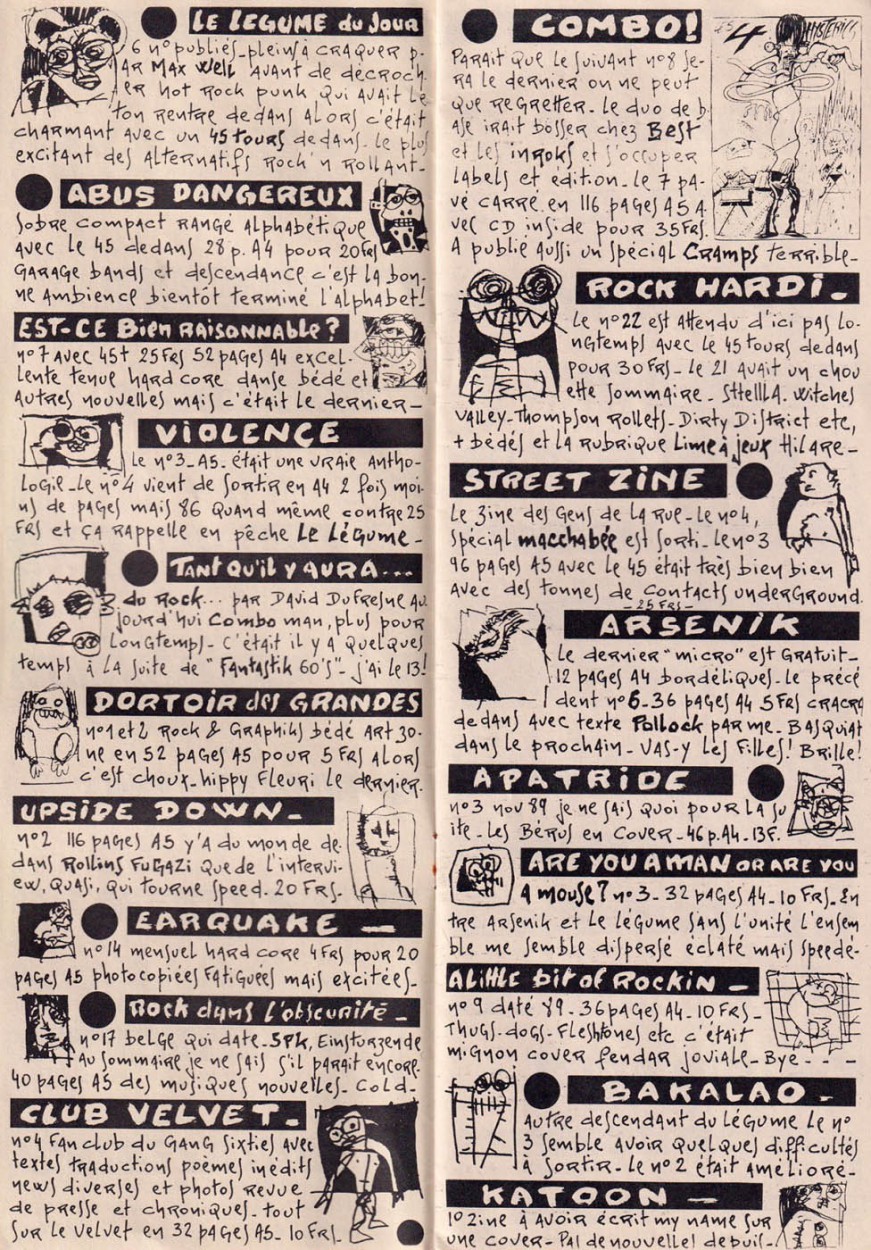 LE LEGUME du Jour
6 nos publiés-pleins à craquer p-
AR MAX Well AVANT de décroch.
ER hot Rock punk qui AVAIT LE
ton rentre dedans ALORS c'était
charmant avec un 45 tours dedans. le plus
excitant des Alternatifs Rock'n Rollant-
ABUS DANGEREUX
Sobre compact RANGÉ Alphabétique
avec le 45 dedans 28 p. A4 pour 20 FRS
GARAGE bands et descendance c'est LA bon-
ne Ambience bientôt terminé l'alphabet!
EST-CE Bien RAISONNABLE?
n°7 avec 45t 25 FRS 52 pages A4 excel-
lente tenue hard core danse bédé et
autres nouvelles mais c'était le dernier-
VIOLENCE
Le n°3-A5. était une vraie Antho-
logie-Le n°4 vient de sortir en A4 2 fois moi-
ns de pages mais 86 Quand même contre 25
FRS et ça rappelle en pêche Le Légume-
TANT QU'il Y AURA...
du Rock... par DAVID DUFRESNE AU
jourd'hui Combo man, plus pour
Longtemps- C'était il y a quelques
temps à LA suite de "Fantastik 60's"- j'ai le 13!
DORTOIR des GRANDES
n°1 et 2 Rock & Graphiks bédé ART 30-
ne en 52 pages A5 pour 5 FRS alors
c'est choux-hippy Fleuri le dernier.
UPSIDE DOWN-
n°2 116 pages A5 y'A du monde de
dans Rollins Fugazi que de l'intervi-
ew, quasi, qui tourne speed. 20 FRS-
EARQUAKE -
n°14 mensuel hard core 4 FRS pour 20
pages A5 photocopiées Fatiguées mais excitées-
Rock dans l'obscurité -
n°17 belge qui date-SPK, Einsturzende
Au Sommaire je ne sais s'il parait encore.
40 pages A5 des musiques nouvelles- Cold-
CLUB VELVET-
n°4 Fan club du Gang Sixties avec
textes traductions poèmes inédits
news diverses et photos revue
de presse et chroniques- tout
sur le Velvet en 32 pages A5- 10 FRS.
COMBO!
Parait que le suivant n°8 se-
RA le dernier on ne peut
que regretter. le duo de b
ase irait bosser chez Best
et les inroks et s'occuper
labels et édition. le 7 pa-
vé carré en 116 pages A5 A
vec CD inside pour 35 FRS.
A publié aussi un spécial Cramps terrible-
4 HYSTERICS
ROCK HARDI-
Le n°22 est attendu d'ici pas lo-
ngtemps avec le 45 tours dedans
pour 30 FRS- le 21 avait un chou
ette sommaire. Sthella. Witches
Valley-Thompson Rollets-Dirty District etc,
+ bédés et la rubrique Lime à jeux Hilare-
STREET ZINE
Le zine des gens de la rue-le n°4,
spécial macchabée est sorti- le n°3
96 pages A5 avec le 45 était très bien bien
avec des tonnes de contacts underground.
-25 FRS-
ARSENIK
Le dernier "micro" est gratuit-
12 pages A4 bordéliques-le précé
dent n°6-36 pages A4 5 FRS cracra
dedans avec texte Pollock par me- BASQUIAT
dans le prochain- VAS-y les Filles! Brille!
APATRIDE
n°3 nov 89 je ne sais quoi pour la su
ite- Les Bérus en Cover-46 p.A4-13F.
ARE YOU A MAN OR ARE YOU
A mouse? n°3-32 pages A4-10 FRS. En
tre Arsenik et le Légume sans l'unité l'ensem
ble me semble dispersé éclaté mais speedé-
A little bit of Rockin -
n°9 daté 89-36 pages A4-10 FRS-
Thugs-dogs-Fleshtones etc c'était
mignon cover fendar joviale- Bye - - -
BAKALAO -
Autre descendant du Légume le n°
3 semble avoir quelques difficultés
à sortir- le n°2 était amélioré-
KATOON -
1° zine à avoir écrit my name sur
une cover- Pas de nouvelles depuis-